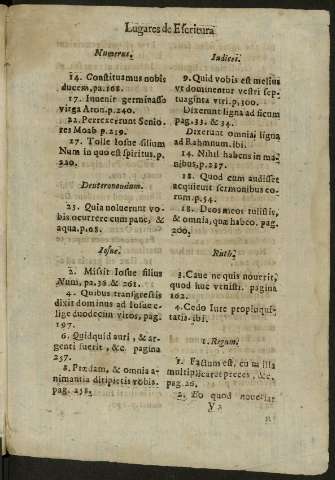 Lugares de Escritura
Numerus.
14. Constituamus nobis
ducem. pa.168.
17. Inuenir germinasso
virga Aron. p.240.
22. Perrexerunt Senio
res Moab p.219.
27. Tolle Iosue filium
Num in quo est spiritus. p.
220.
Deuteronomium.
23. Quia noluerunt vo
bis ocurrere cum pane, &
aqua. p.68.
Iosue.
2. Missit Iosue filius
Num, pa.36 & 261.
4. Quibus transgressis
dixit dominus ad Iosue e-
lige duodecim viros, pag.
197.
6. Quidquid auri, & ar-
genti fuerit, &c. pagina
257.
8. Prædam, & omnia a-
nimantia diripietis vobis.
pag. 258.
Iudices.
9. Quid vobis est melius
vt dominentur vestri sep-
tuaginta viri. p.300.
Dixerunt ligna ad ficum
pag. 33. & 34.
Dixerunt omnia ligna
ad Rahmnum. ibi.
14. Nihil habens in ma-
nibus, p.237.
18. Quod cum audisset
acquieuit sermonibus eo-
rum. p.54.
18. Deos meos tulistis,
& omnia, quæ habeo. pag.
200.
Ruth.
3. Caue ne quis nouerit,
quod huc venisti. pagina
162.
4. Cedo iure propinqui-
tatis. ibi.
1. Regum.
1. Factum est, cum illa
multiplicaret preces, &c.
pag. 26.
2. Eo quod noueriat
Y 2